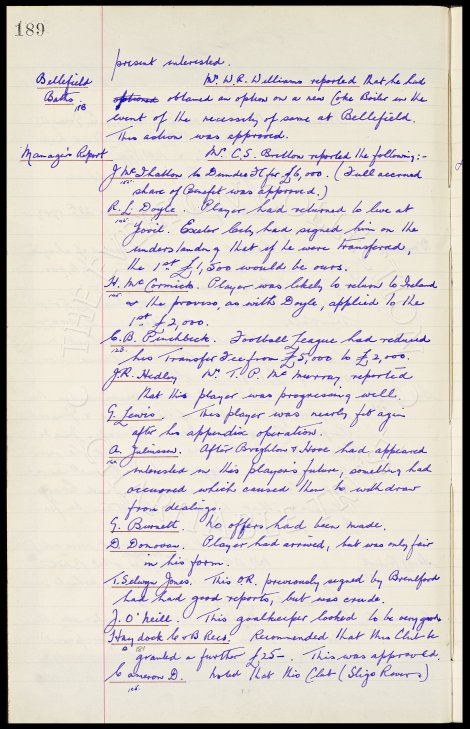 189
present interested.
Bellefield Mr. W. R. Williams reported that he had
Baths optioned obtained an option on a new Coke Boiler in the
118
event of the necessity of same at Bellefield.
This action was approved.
Manager's Report Mr. C. S. Britton reported the following:-
J. McIlhatton to Dundee FC for £6,000. (Full accrued
share of Benefit was approved.)
R. L. Doyle. Player had returned to live at
Yeovil. Exeter City had signed him on the
understanding that if he were transferred,
the 1st £1,500 would be ours.
H. McCormick. Player was likely to return to Ireland
& the proviso, as with Doyle, applied to the
1st £2,000.
C. B. Pinchbeck. Football League had reduced
123
his Transfer Fee from £5,000 to £2,000.
J. R. Hedley Mr. T. P. McMurray reported
that this player was progressing well.
G. Lewis. This player was nearly fit again
after his appendix operation.
A. Juliussen. After Brighton & Hove had appeared
interested in this player's future, something had
occurred which caused them to withdraw
from dealings.
G. Burnett. No offers had been made.
D. Donovan. Player had arrived, but was only fair
in his form.
T. Selwyn Jones. This OR. previously signed by Brentford
had had good reports, but was crude.
J. O'Neill. This goalkeeper looked to be very good.
Haydock C & B Recs. Recommended that this Club be
granted a further £25-. This was approved.
Cameron D. Noted that this Club (Sligo Rovers)